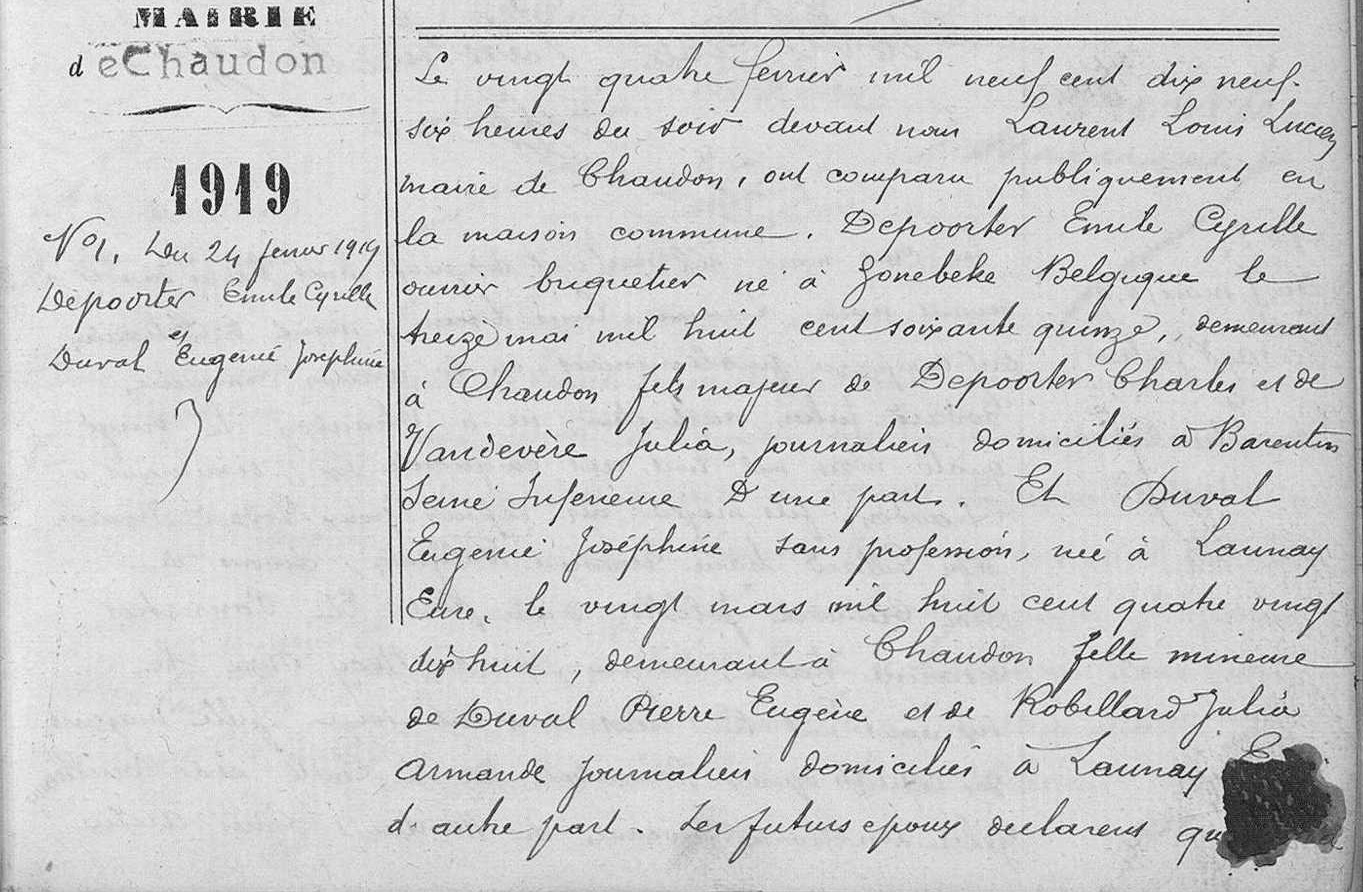 MAIRIE
de Chaudon
1919
No 1. Du 24 fevrier 1919
Depoorter Emile Cyrille
et
Duval Eugenie Joséphine
Le vingt quatre fevrier mil neuf cent dix neuf.
six heures du soir devant nous Laurent Louis Lucien
maire de Chaudon, ont comparu publiquement en
la maison commune. Depoorter Emile Cyrille
ouvrier briquetier né à Zonebeke Belgique le
treize mai mil huit cent soixante quinze, demeurant
à Chaudon fils majeur de Depoorter Charles et de
Vandevère Julia, journaliers domiciliés à Barentin
Seine Inferieure D'une part. Et Duval
Eugenie Joséphine sans profession, née à Launay
Eure. le vingt mars mil huit cent quatre vingt
dix huit, demeurant à Chaudon fille mineure
de Duval Pierre Eugène et de Robillard Julia
Armande journaliers domiciliés à Launay
d'autre part. Les futurs epoux declarent